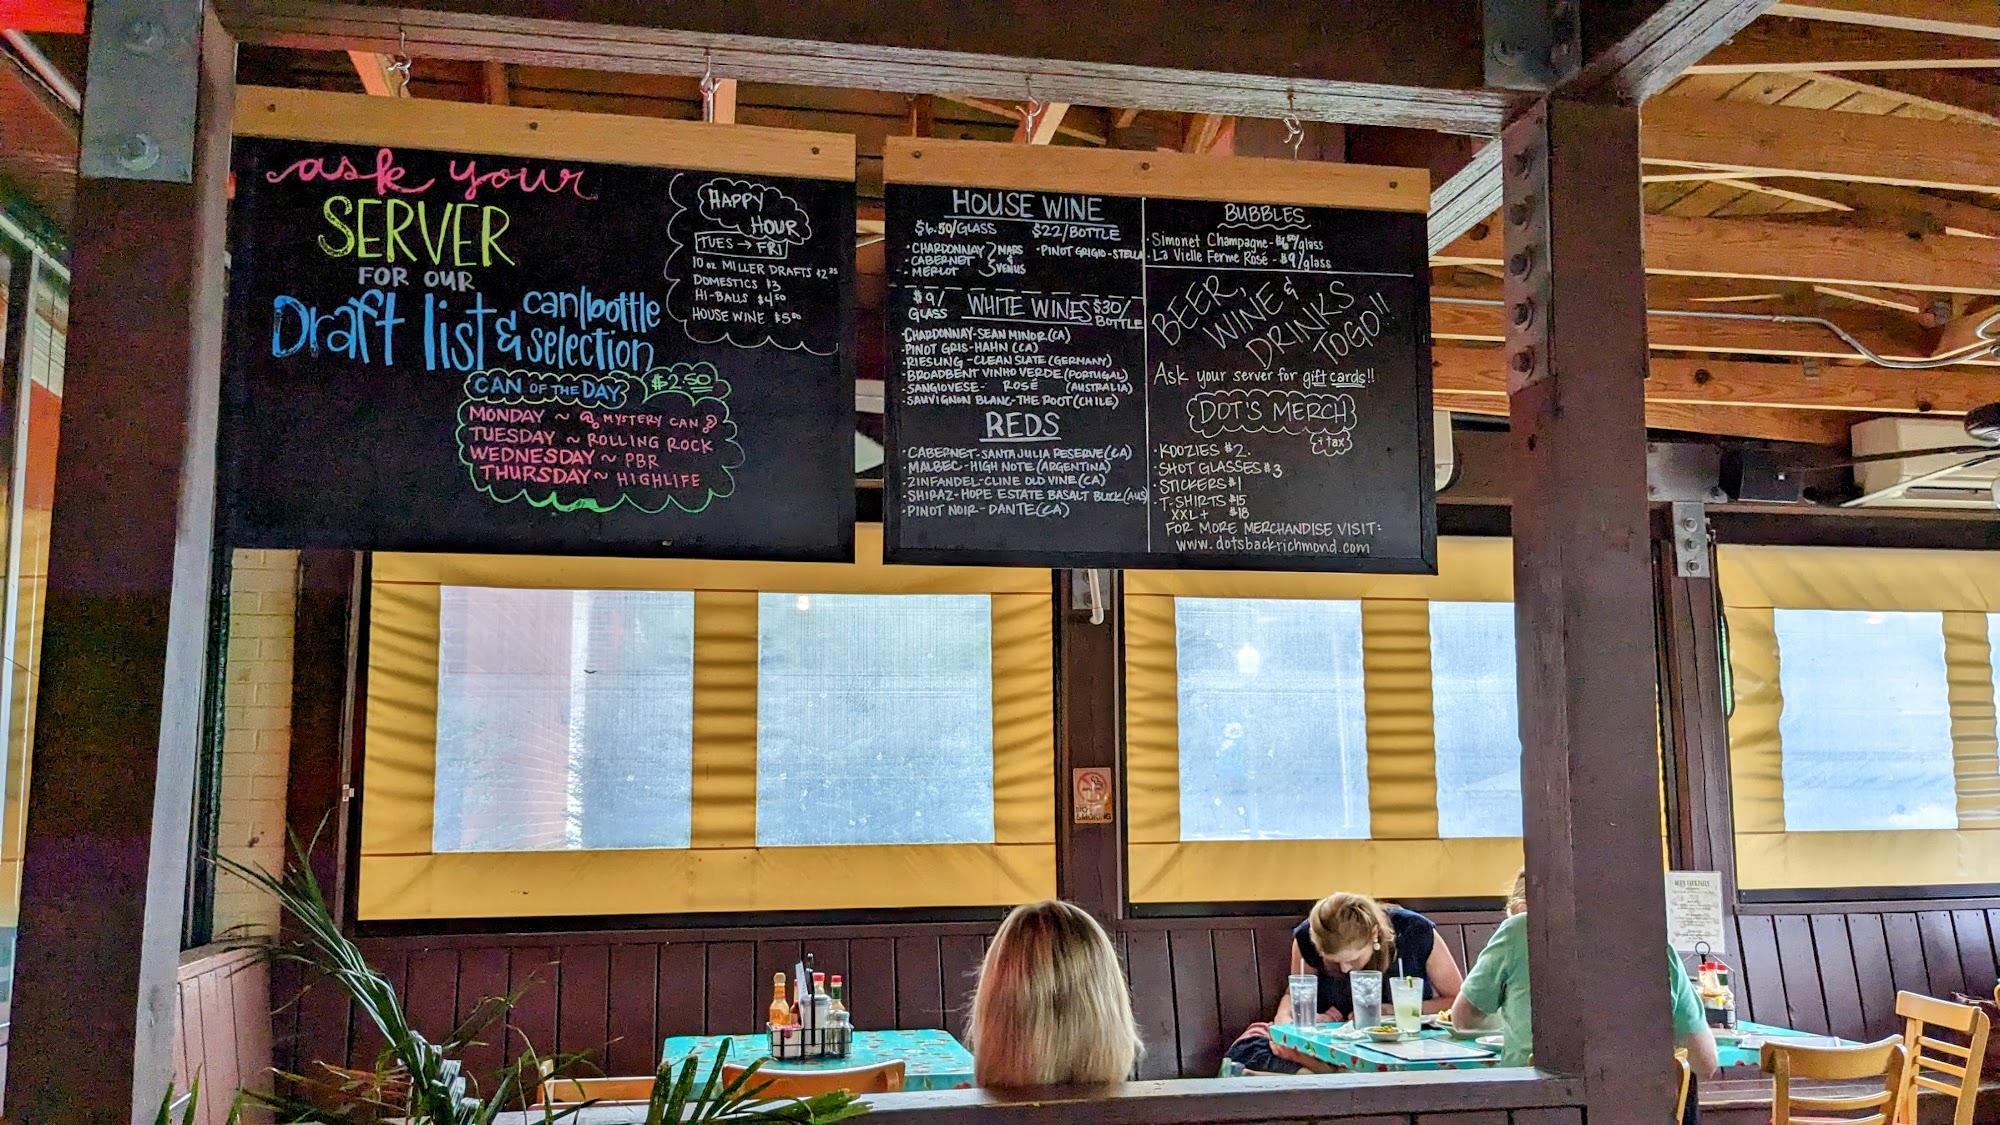 ask your
SERVER
FOR OUR
Draft list & can/bottle selection
CAN OF THE DAY $2.50
MONDAY ~ MYSTERY CAN
TUESDAY ~ ROLLING ROCK
WEDNESDAY ~ PBR
THURSDAY ~ HIGHLIFE
HAPPY
HOUR
TUES → FRI
10 oz MILLER DRAFTS
DOMESTICS $3
HI-BALLS $4.50
HOUSE WINE $5.00
HOUSE WINE
$6.50/GLASS $22/BOTTLE
• CHARDONNAY
• CABERNET
• MERLOT
MARS & VENUS
• PINOT GRIGIO-STELLA
$9/GLASS WHITE WINES $30/BOTTLE
• CHARDONNAY-SEAN MINOR (CA)
• PINOT GRIS-HAHN (CA)
• RIESLING-CLEAN SLATE (GERMANY)
• BROADBENT VINHO VERDE (PORTUGAL)
• SANGIOVESE- ROSÉ (AUSTRALIA)
• SAUVIGNON BLANC-THE ROOT (CHILE)
REDS
• CABERNET-SANTA JULIA RESERVE (CA)
• MALBEC-HIGH NOTE (ARGENTINA)
• ZINFANDEL-CLINE OLD VINE (CA)
• SHIRAZ-HOPE ESTATE BASALT BLOCK (AUS)
• PINOT NOIR-DANTE (CA)
BUBBLES
• Simonet Champagne- /glass
• La Vielle Ferme Rosé - $9/glass
BEER,
WINE &
DRINKS
TO GO!!
Ask your server for gift cards!!
DOT'S MERCH
+ tax
• KOOZIES $2.
• SHOT GLASSES $3
• STICKERS $1
• T-SHIRTS $15
XXL+ $18
FOR MORE MERCHANDISE VISIT:
www.dotsbackrichmond.com
NO
SMOKING